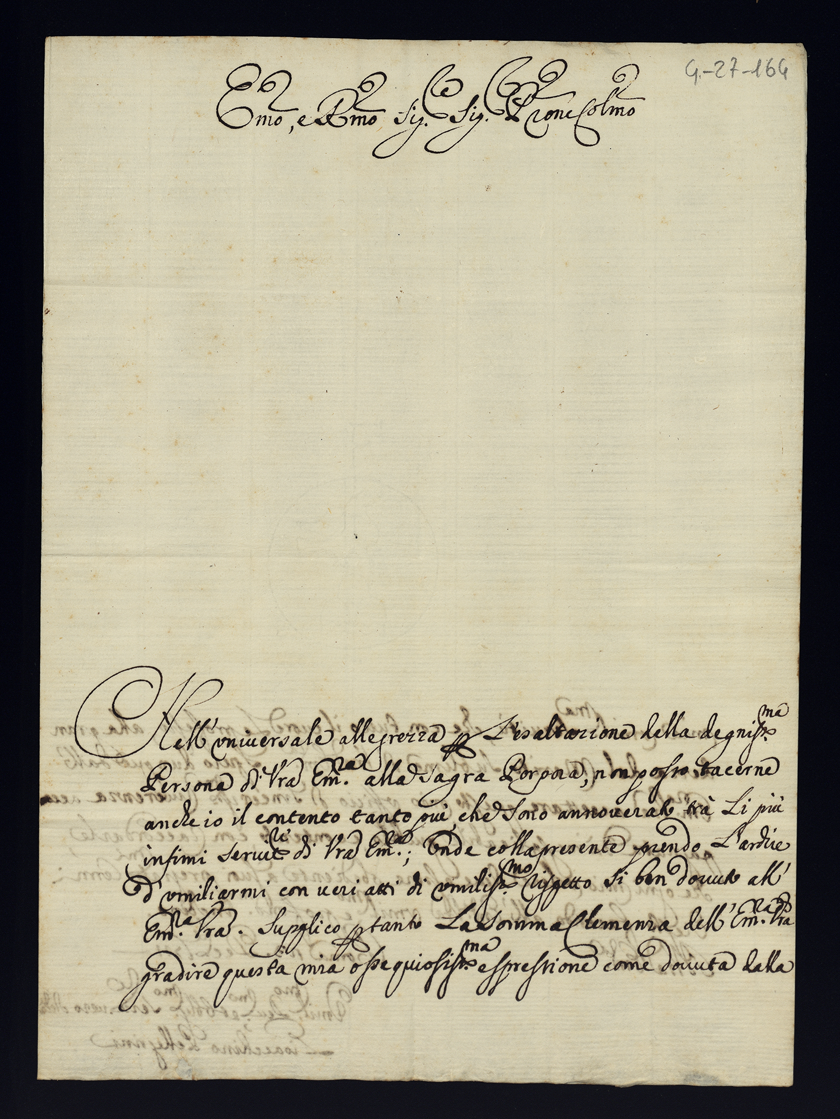 G-27-164
Emo, e Rmo Sig.re Sig.re Prone Colmo
Nell'universale allegrezza p l'esaltazione della degnissma
Persona di Vra Em.za alla Sagra Porpora, non posso tacerne
anche io il contento tanto più che sono annoverato trà li più
infimi servit.ri di Vra Em.za; Onde colla presente prendo l'ardire
d'umiliarmi con veri atti di umilissmo rispetto si ben dovuto all'
Em.za Vra. Supplico ptanto La somma Clemenza dell'Em.za Vra
gradire questa mia ossequiosissma espressione come dovuta dalla